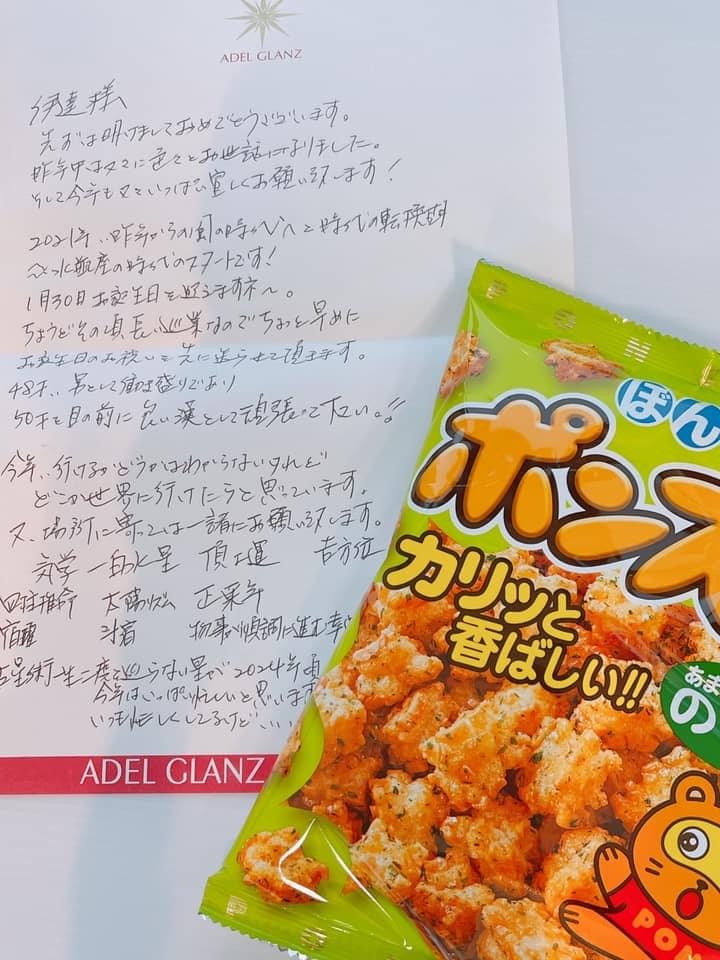 ADEL GLANZ
伊達様
先ずは明けましておめでとうございます。
昨年中は又々に色々とお世話になりました。
そして今年も又いっぱい宜しくお願い致します！
2021年、昨年からの風の時代へと時代の転換期
水瓶座の時代のスタートです！
1月30日お誕生日を迎えますネ〜。
ちょうどその頃長い巡業なのでちょっと早めに
お誕生日のお祝いを先に送らせて頂きます。
48才、男として働き盛りであり
50才を目の前に良い漢として頑張って下さい。!!
今年、行けるかどうかはわからないけれど
どこか世界に行けたらと思っています。
又、場所に寄っては一緒にお願い致します。
気学 一白水星 頂上運 吉方位
四柱推命 太陽リズム 正業年
宿曜 斗宿 物事が順調に進む幸
占星術一生二度と巡らない星が2024年頃
今年はいっぱい忙しいと思います
いつも忙しくしてるけど、、、
ADEL GLANZ
PON
ぼん
ポンス
カリッと
香ばしい!!
あま
の
PON
P O N